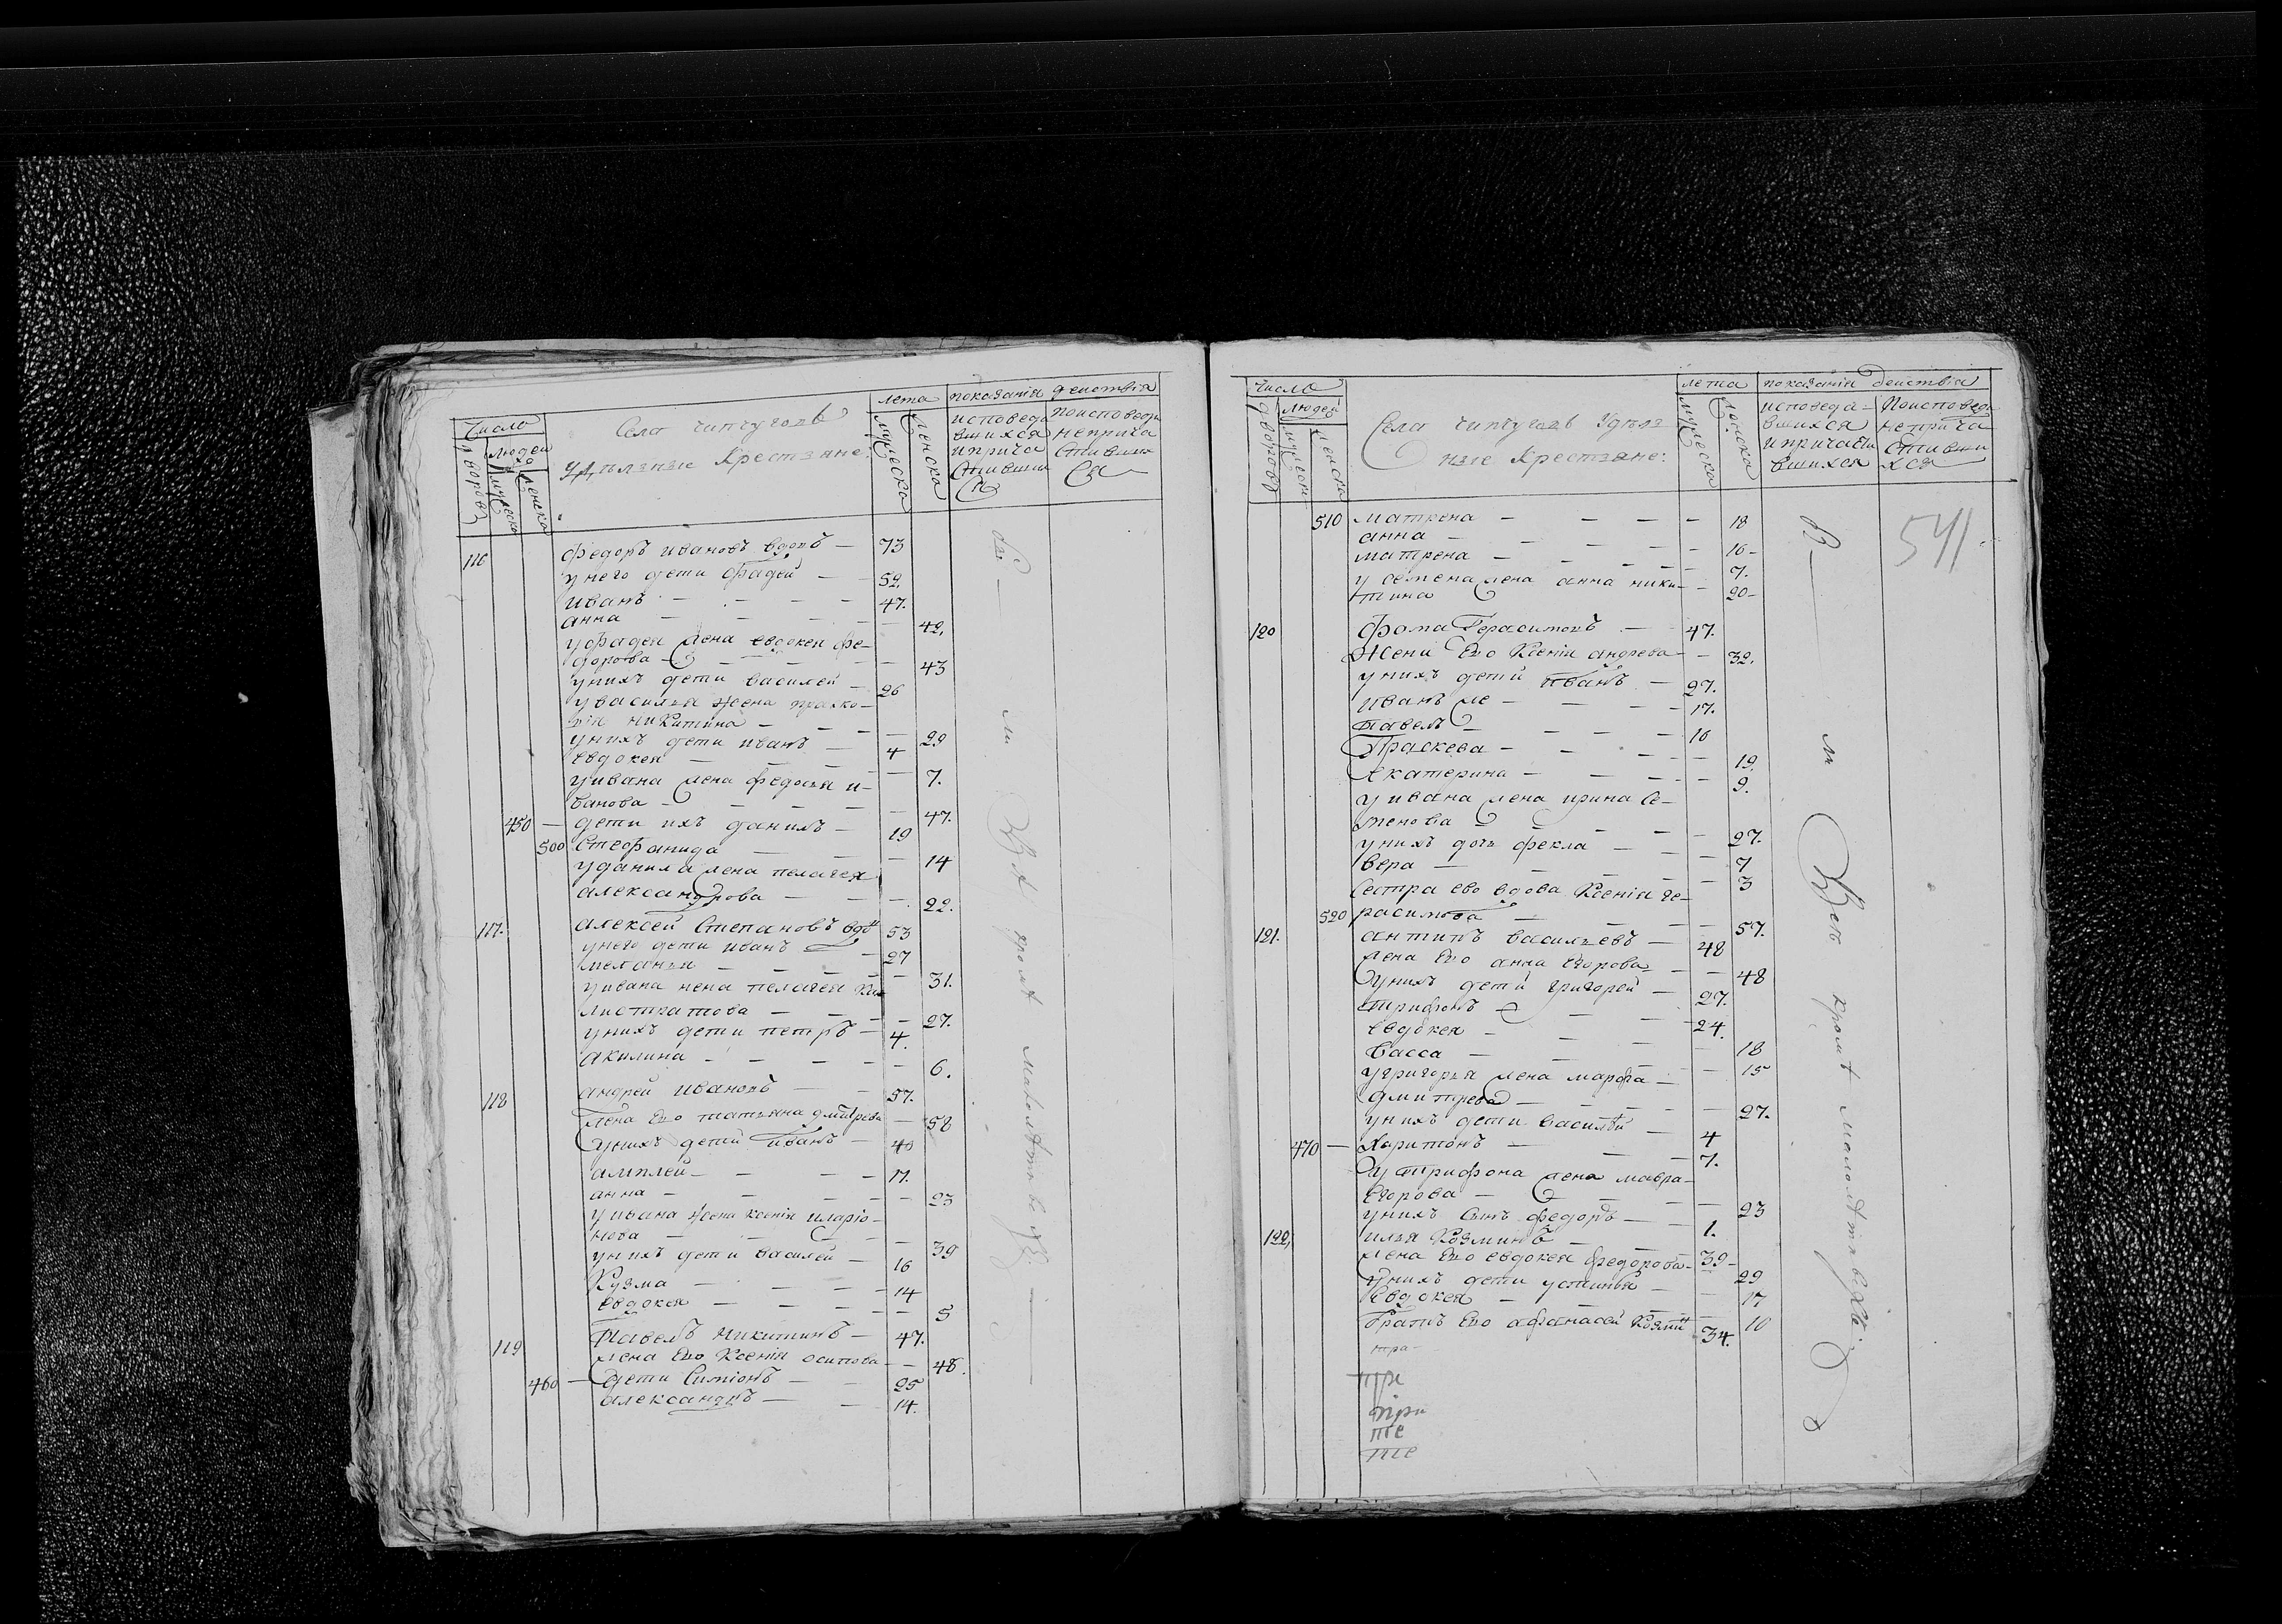 Число
Людей
дворовъ
мужеска
женска
Села чипчуговъ
удѣлзные крестзяне:
лета
мужеска
женска
показанія действія
исповеда
вшихся
иприча
стивши
ся
поисповеди
неприча
стивших
ся
116 федоръ ивановъ вдовъ — 73
унего дети Фадей — 52.
иванъ — — — 47.
анна — — — 42.
уфадея жена евдокея фе–
дорова — — — 43
унихъ дети василей — 26
увасилья жена праско–
вія никитина — — — 29
унихъ дети иванъ — 4
евдокея — — — 7.
уивана жена федосья и–
ванова — — — 47.
450 — дети ихъ данилъ — 19
500 Стефанида — — 14
уданила жена пелагея
александрова — — 22.
117. алексей Степановъ вдо 53
унего дети иванъ — 27
меланья — — — 31.
уивана жена пелагея Ка
листратова — — — 27.
унихъ дети петръ — 4.
акилина — — — 6.
118 андрей ивановъ — 57.
жена Ево татьяна дмитрева — 58
унихъ дети иванъ — 40
амплей — — — 17.
анна — — — 23
уивана жена ксенія иларіо–
нова — — — 39
унихъ дети василей — 16
Кузма — — — 14
Евдокея — — — 5
119 Павелъ никитинъ — 47.
жена Ево Ксенія осипова — 48.
460 — дети Симіонъ — 25
александръ — — 14.
Всѣ кромѣ малолѣтныхъ
Число
Людей
дворовъ
мужеск
женска
Села чипчуговъ Удѣлз
ные крестзяне:
лета
мужеска
женска
показанія действія
исповеда–
вшихся
ипричасти
вшихся
Поисповеди
неприча
стивши
хся
541
510 матрена — — — 18
анна — — — 16–
матрена — — — 7.
у семена жена анна ники–
тина — 20–
120 фома Герасимовъ — 47.
Жена Ево Ксенія андрева — 32.
унихъ дети иванъ — 27.
иванъ же — — — 17.
павелъ — — — 10
Праскева — — — 19.
екатерина — — — 9.
у ивана жена ирина Се–
менова — — — 27.
унихъ дочь фекла — — 7
вера — — — 3
Сестра ево вдова Ксенія ге–
520 расимова — — — 57.
121. антипъ васильевъ — 48
жена Ево анна Егорова — 48
унихъ дети григорей — 27.
трифонъ — — 24.
евдокея — — — 18
васса — — — 15
угригорья жена марфа —
дмитрева — — — 27.
унихъ дети василѣй — 4
470 — Харитонъ — — 7.
у трифона жена мавра–
Егорова — — — 23
унихъ сынъ федоръ — 1.
122, илья Козминъ — 39–
жена Ево евдокея федорова — 29
унихъ дети устинья — 17
Евдокея — — — 10
братъ Ево афанасей Козми 34.
тра–
три
при
те
те
Всѣ кромѣ малолѣтныхъ